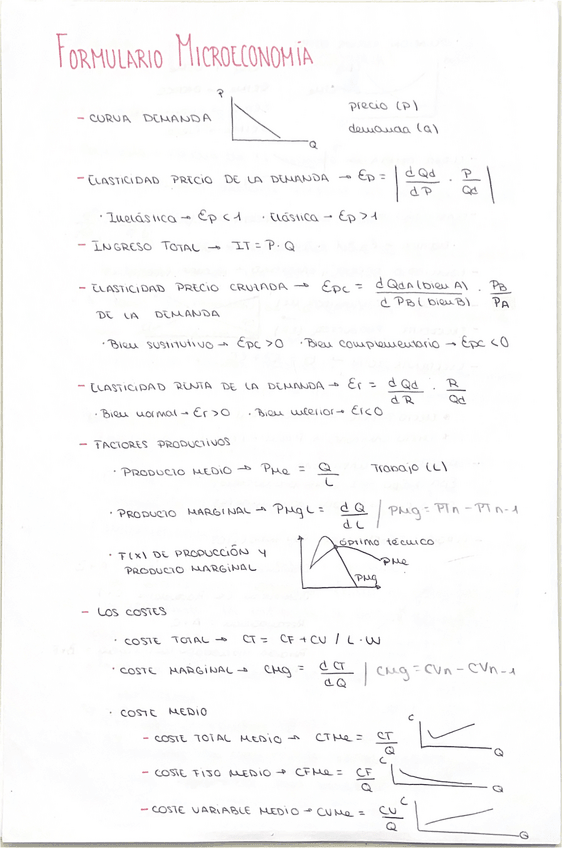 FORMULARIO MICROECONOMÍA
- CURVA DEMANDA P Q precio (P)
demanda (Q)
- ELASTICIDAD PRECIO DE LA DEMANDA → Ep = | dQd/dP · P/Qd |
· Inelástica → Ep < 1 · Elástica → Ep > 1
- INGRESO TOTAL → IT = P · Q
- ELASTICIDAD PRECIO CRUZADA → Epc = dQdA (bien A)/dPB (bien B) · PB/PA
DE LA DEMANDA
· Bien sustitutivo → Epc > 0 · Bien complementario → Epc < 0
- ELASTICIDAD RENTA DE LA DEMANDA → Er = dQd/dR · R/Qd
· Bien normal → Er > 0 · Bien inferior → Er < 0
- FACTORES PRODUCTIVOS
· PRODUCIO MEDIO → PMe = Q/L Trabajo (L)
· PRODUCIO MARGINAL → PMgL = dQ/dL / PMg = PTn - PTn-1
· F(X) DE PRODUCCIÓN Y
PRODUCIO MARGINAL
óptimo técnico
PMe
PMg
- LOS COSTES
· COSTE TOTAL → CT = CF + CV / L · W
· COSTE MARGINAL → CMg = dCT/dQ / CMg = CVn - CVn-1
· COSTE MEDIO
- COSTE TOTAL MEDIO → CTMe = CT/Q C Q
- COSTE FIJO MEDIO → CFMe = CF/Q C Q
- COSTE VARIABLE MEDIO → CVMe = CV/Q C Q